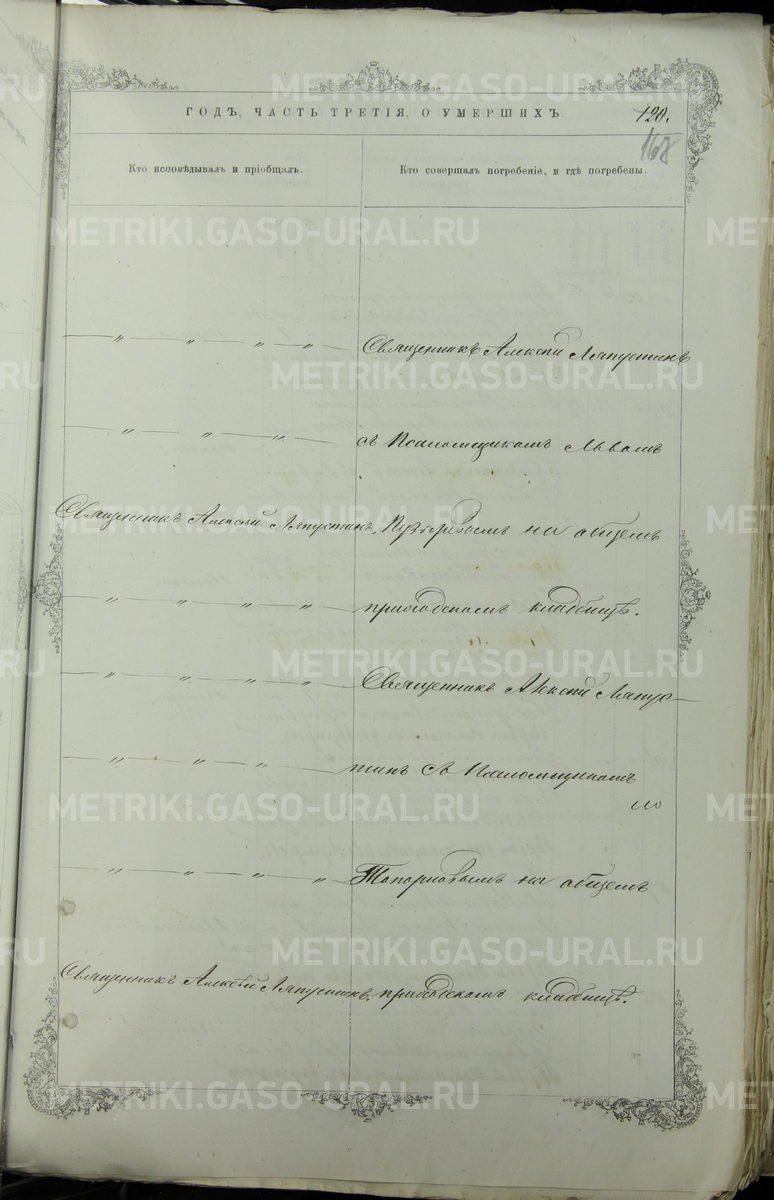 ГОДЪ, ЧАСТЬ ТРЕТІЯ, О УМЕРШИХЪ.
120.
168
Кто исповѣдывалъ и пріобщалъ.
Кто совершалъ погребеніе, и гдѣ погребены.
— " — " — " — " —
Священникъ Алексѣй Ляпустинъ
— " — " — " —
съ Псаломщикомъ Львомъ
Священникъ Алексѣй Ляпустинъ.
на общемъ
— " — " — " — "
приходскомъ кладбищѣ.
— " — " — " — "
Священникъ Алексѣй Ляпус-
— " — " — " —
тинъ съ Псаломщикомъ
— " — " — " — "
Топорковымъ на общемъ
Священникъ Алексѣй Ляпустинъ.
приходскомъ кладбищѣ.
METRIKI.GASO-URAL.RU